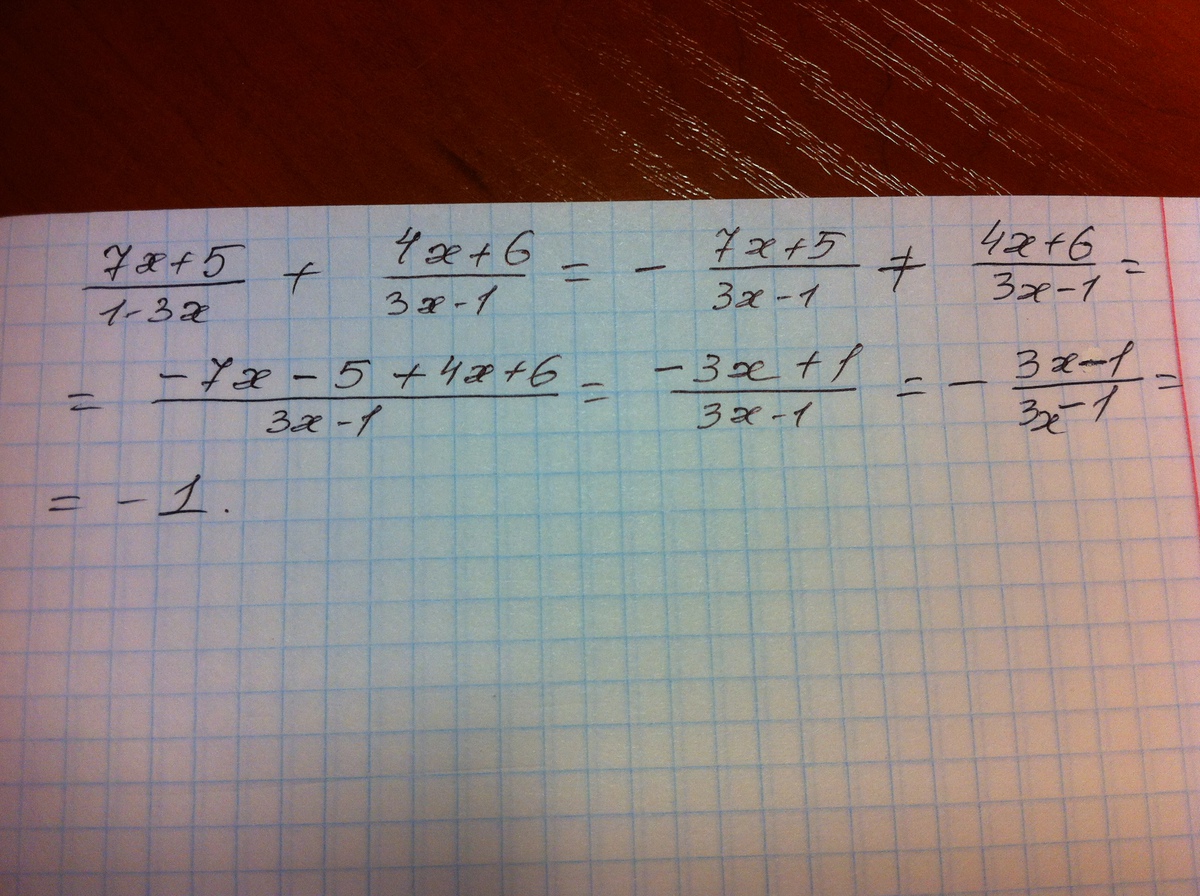 (7x+5)/(1-3x) + (4x+6)/(3x-1) = - (7x+5)/(3x-1) + (4x+6)/(3x-1) =
= (-7x-5+4x+6)/(3x-1) = (-3x+1)/(3x-1) = - (3x-1)/(3x-1) =
= -1.